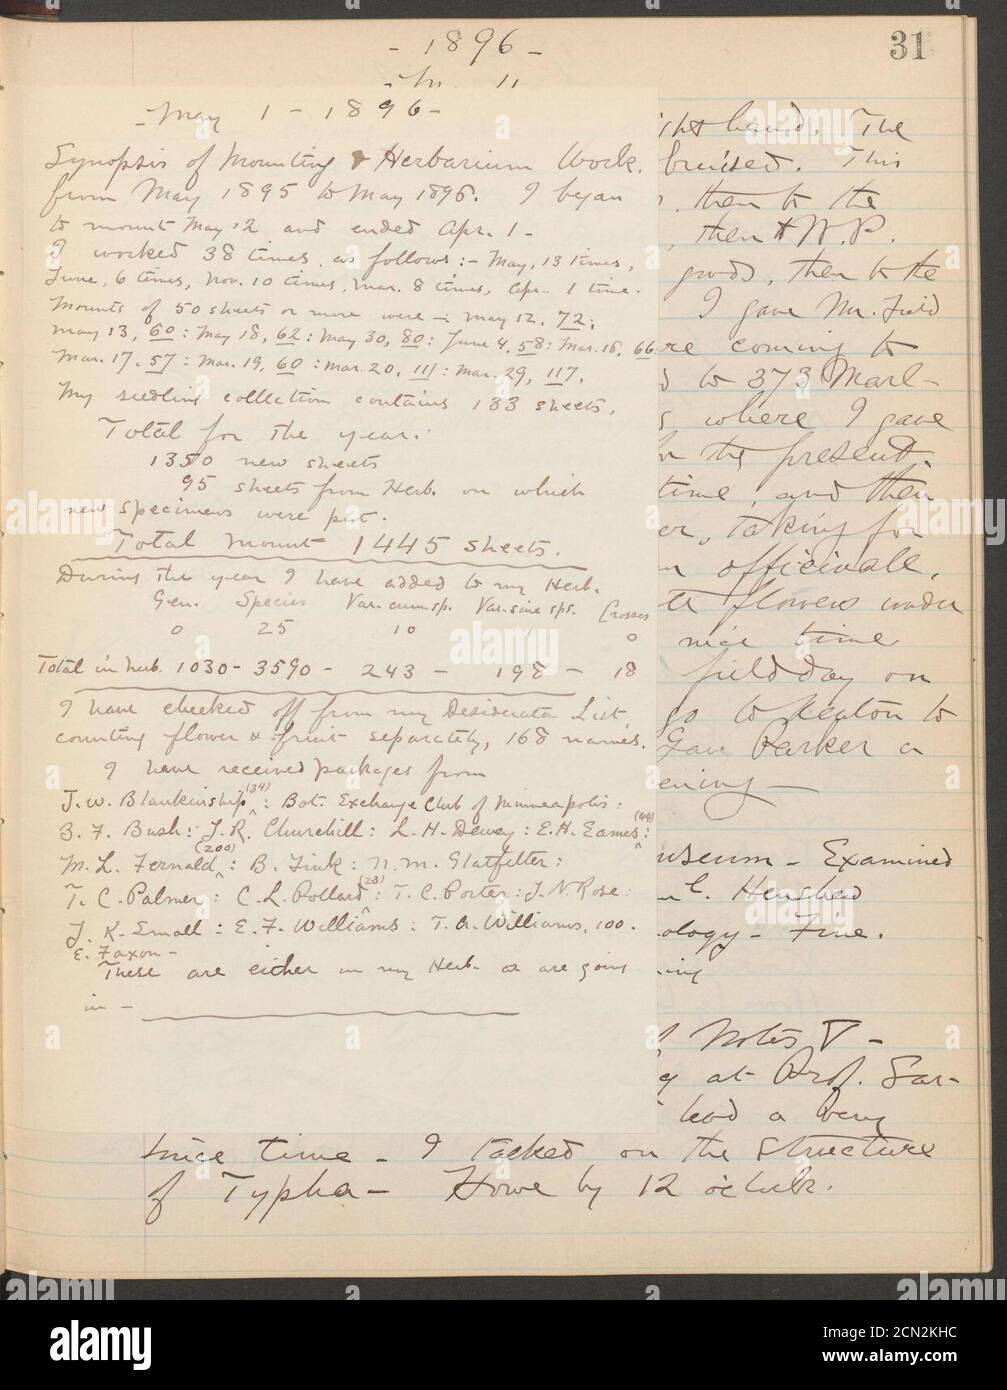 - 1896 -
31
11
- May 1 - 1896 -
Synopsis of Mounting & Herbarium Work.
from May 1895 to May 1896. I began
to mount May 12 and ended Apr. 1 -
I worked 38 times, as follows :- May, 13 times,
June, 6 times, Nov. 10 times, Mar. 8 times, Apr. 1 time.
Mounts of 50 sheets or more were :- May 12, 72;
May 13, 60 : May 18, 62 : May 30, 80 : June 4, 58 : Mar. 16, 66
Mar. 17, 57 : Mar. 19, 60 : Mar. 20, 111 : Mar. 29, 117.
My seedling collection contains 133 sheets.
Total for the year:
1350 new sheets
95 sheets from Herb. on which
new specimens were put.
Total mount 1445 sheets.
During the year I have added to my Herb.
Gen. Species Var. cum sp. Var. sine sps. Crosses
0 25 10 0
Total in herb. 1030 - 3590 - 243 - 198 - 18
I have checked off from my Desiderata List,
counting flower & fruit separately, 168 names.
I have received packages from
J. W. Blankinship (34) : Bot. Exchange Club of Minneapolis :
B. F. Bush : J. R. Churchill : L. H. Dewey : E. H. Eames (44) :
M. L. Fernald (200) : B. Fink : N. M. Glatfelter :
T. C. Palmer : C. L. Pollard (23) : T. C. Porter : J. N. Rose :
J. K. Small : E. F. Williams : T. A. Williams, 100.
E. Faxon -
These are either in my Herb. or are going
in -
hand. The
bruised. This
then to the
, then to W. P.
goods, then to the
I gave Mr. Field
coming to
to 373 Marl-
where I gave
the present.
time, and then
taking for
officinale,
flowers under
nice time
field day on
go to Keaton to
Gave Parker a
ening -
useum - Examined
Henshaw
ology - Fine.
Notes
at Prof. Sar-
had a very
nice time - I talked on the structure
of Typha - Home by 12 o'clock.
alamy
Image ID: 2CN2KHC
www.alamy.com